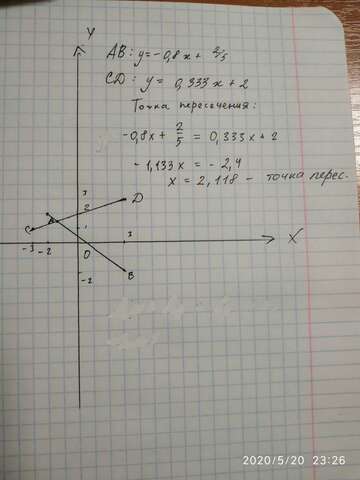 y
AB: y = -0,8x + 2/5
CD: y = 0,333x + 2
Точка пересечения:
-0,8x + 2/5 = 0,333x + 2
-1,133x = -2,4
x = 2,118 - точка перес.
3
D
2
A
C
1
-3 -2
0
3
X
-2
B
2020/5/20 23:26